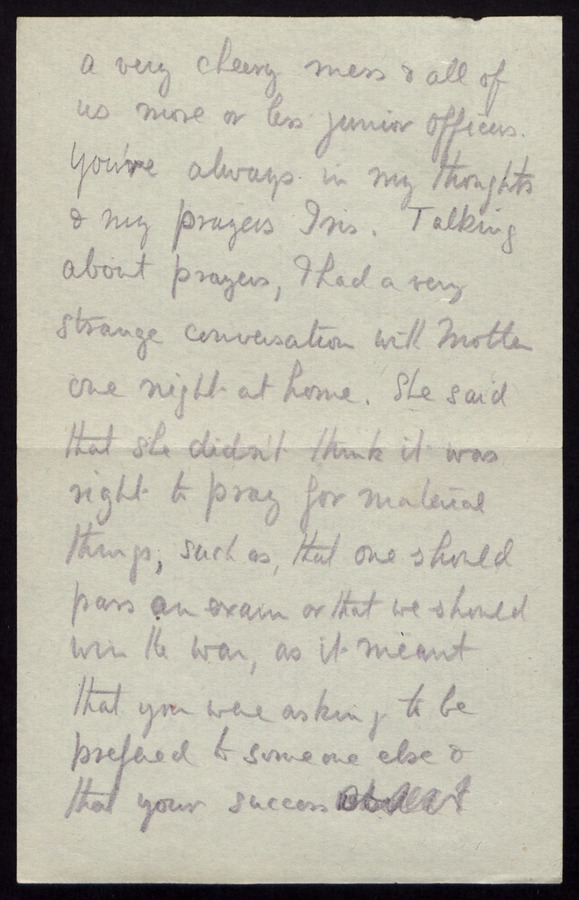 a very cheery mess & all of
us more or less junior officers.
You're always in my thoughts
& my prayers Iris. Talking
about prayers, I had a very
strange conversation with Mother
one night at home. She said
that she didn't think it was
right to pray for material
things, such as, that one should
pass an exam or that we should
win the war, as it meant
that you were asking to be
prefered to someone else &
that your success